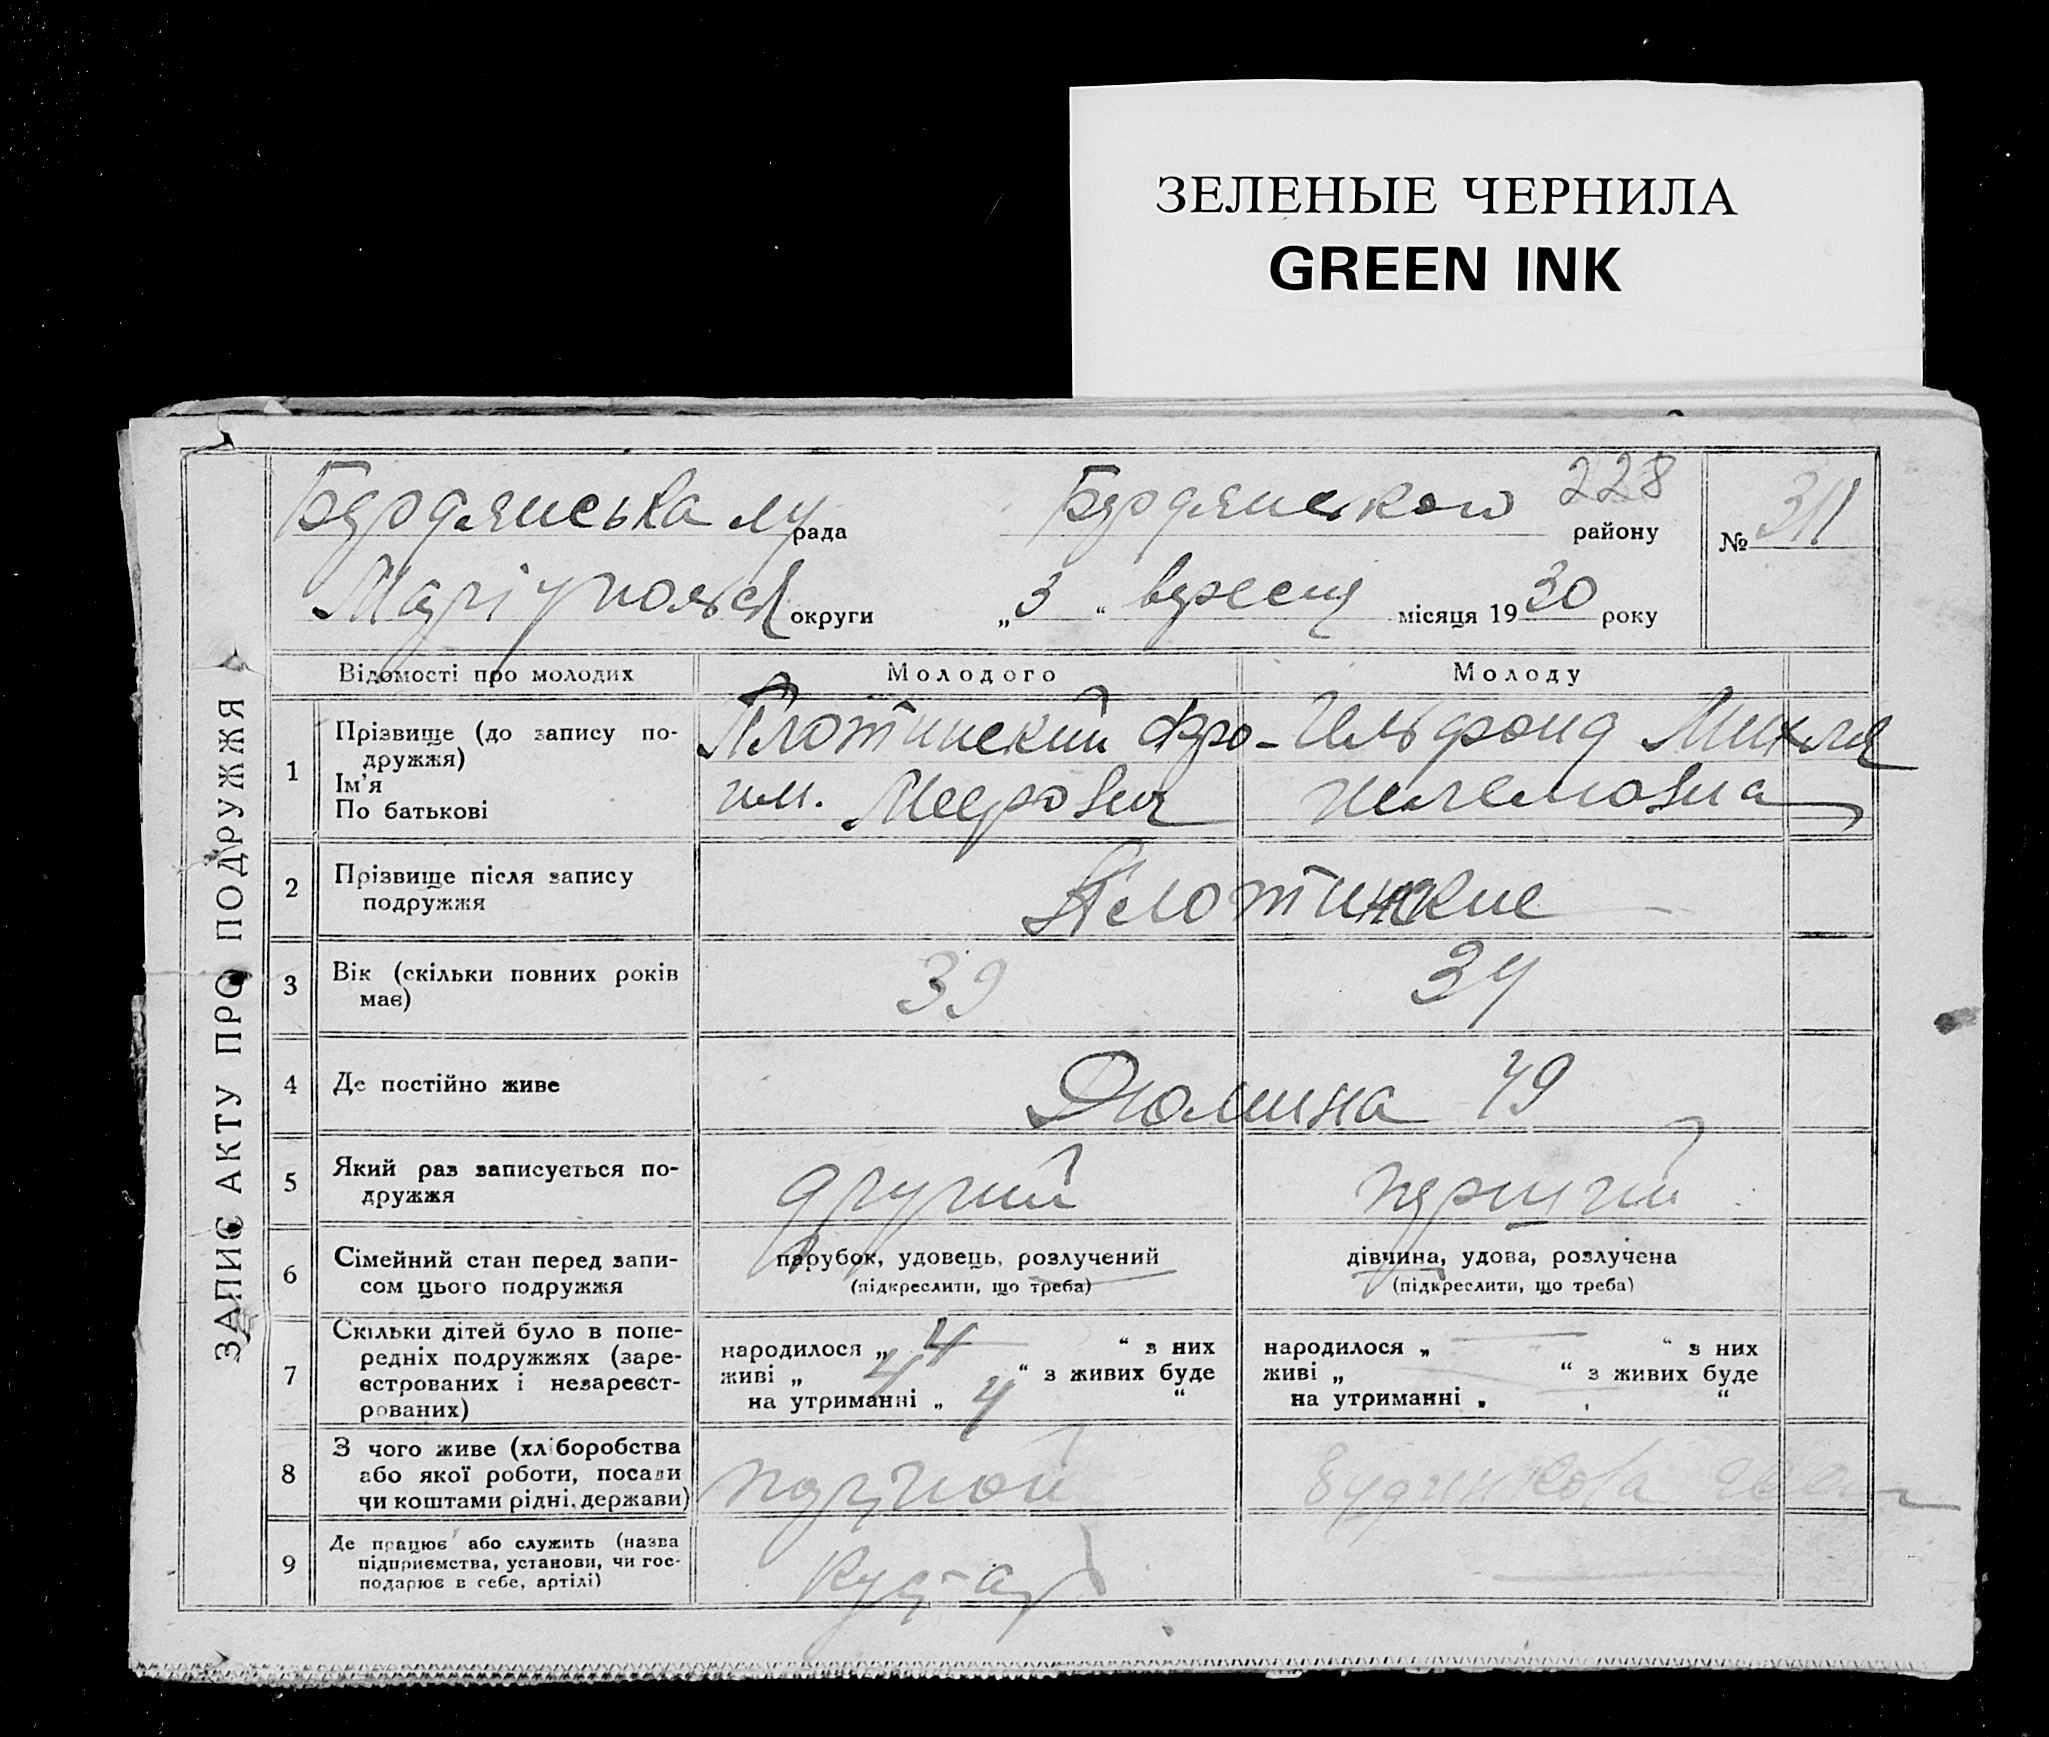 ЗЕЛЕНЫЕ ЧЕРНИЛА
GREEN INK
ЗАПИС АКТУ ПРО ПОДРУЖЖЯ
Бердянська рада Бердянського 228 району
№ 311
Маріупольськ округи „3“ вересня місяця 1930 року
Відомості про молодих Молодого Молоду
1 Прізвище (до запису подружжя)
Ім'я
По батькові
Плотинский Фро-
им. Меерович
Гельфонд Михля
Шлемовна
2 Прізвище після запису
подружжя
Плотинские
3 Вік (скільки повних років
має)
39 34
4 Де постійно живе
Дюмина 49
5 Який раз записується по-
дружжя
другий перший
6 Сімейний стан перед запи-
сом цього подружжя
парубок, удовець, розлучений
(підкреслити, що треба)
дівчина, удова, розлучена
(підкреслити, що треба)
7 Скільки дітей було в попе-
редніх подружжях (заре-
єстрованих і незареєст-
рованих)
народилося „ 4 “ з них
живі „ 4 “ з живих буде
на утриманні „ 4 “
народилося „ — “ з них
живі „ — “ з живих буде
на утриманні „ “
8 З чого живе (хліборобства
або якої роботи, посади
чи коштами рідні, держави)
9 Де працює або служить (назва
підприємства, установи, чи гос-
подарює в себе, артілі)
кустар —